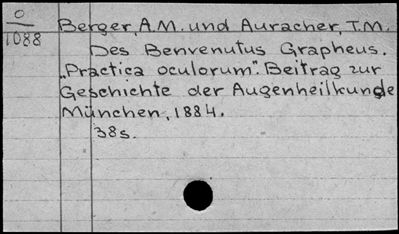 O
1088
Berger, A.M. und Auracher, T.M.
Des Benvenutus Grapheus.
„Practica oculorum". Beitrag zur
Geschichte der Augenheilkunde
München, 1884.
38s.